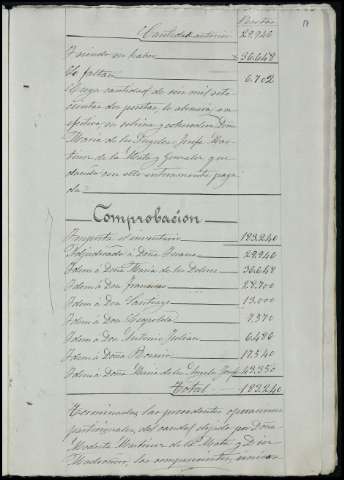 Pesetas
17
Cantidad anterior 29.946
Y siendo su haber 36.648
Le faltan 6.702
Cuya cantidad de seis mil sete
cientas dos pesetas, le abonará en
efectivo, su sobrina y coheredera Doña
María de los Angeles Josefa Mar
tinez de la Mata y Gonzalez, que
dando con ello enteramente paga
da.
Comprobación
Importa el inventario 183.240
Adjudicado á Doña 29.946
Idem á Doña María de los Dolores 36.648
Idem á Don Francisco 28.700
Idem á Don Santiago 13.000
Idem á Don Leopoldo 7.570
Idem á Don Antonio Julian 6.486
Idem á Doña Rosario 17.540
Idem á Doña María de los Angeles Josefa 43.350
Total 183.240
Terminadas las precedentes operaciones
particionales, del caudal dejado por Doña
Modesta Martinez de la Mata y Diaz
Madroñero, los comparecientes, únicos